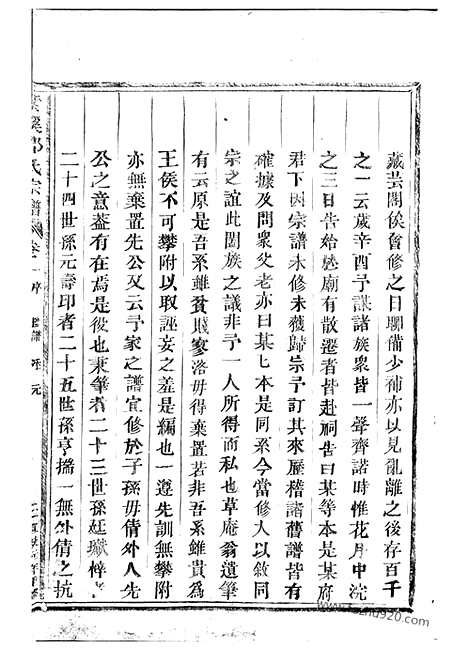 藏芸閣俟會修之日聊備少補亦以見亂離之後存百千
之一云歲辛酉予謀諸族衆皆一聲齊諾時惟花月中浣
之三日告始㒸廟有散遷者皆赴祠告曰某等本是某府
君下因宗譜未修未獲歸宗予訂其來歷稽諸舊譜皆有
確據及問衆父老亦曰某七本是同系今當修人以敘同
宗之誼此闔族之議非予一人所得而私也草庵翁遺筆
有云原是吾系雖貧賤寥落毋得棄置若非吾系雖貴為
王侯不可攀附以取誣妄之羞是編也一遵先訓無攀附
亦無棄置先公又云予家之譜宜修於子孫毋倩外人先
公之意葢有在焉是役也秉筆者二十三世孫廷瓛梓者
二十四世孫元壽印者二十五世孫亨搢一無外倩之抗
溪鄒氏宗譜 卷之一 序